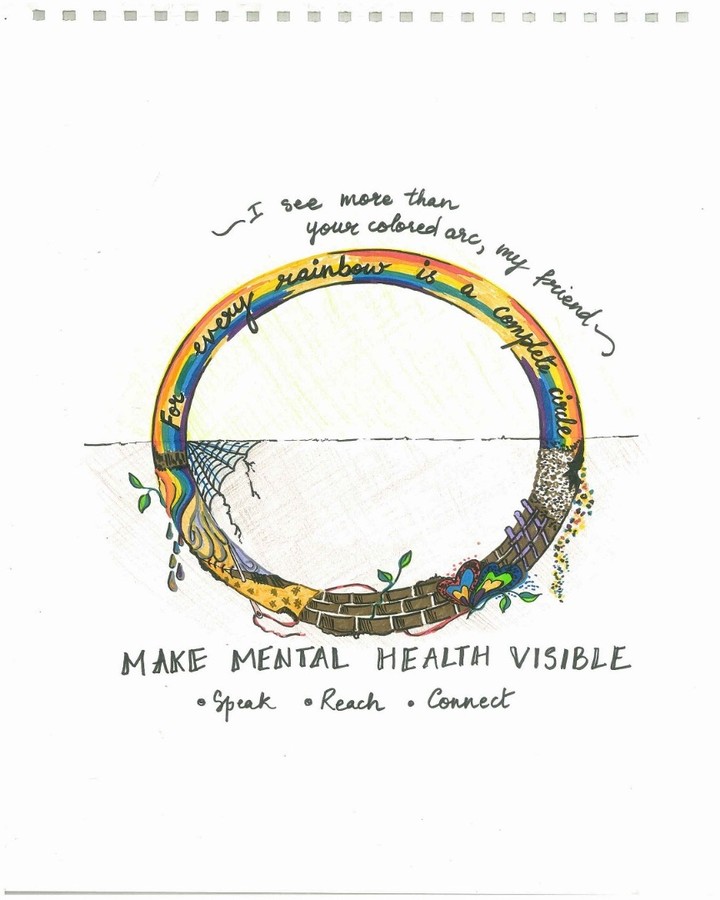 I see more than
your colored arc, my friend
For every rainbow is a complete circle
MAKE MENTAL HEALTH VISIBLE
• Speak • Reach • Connect